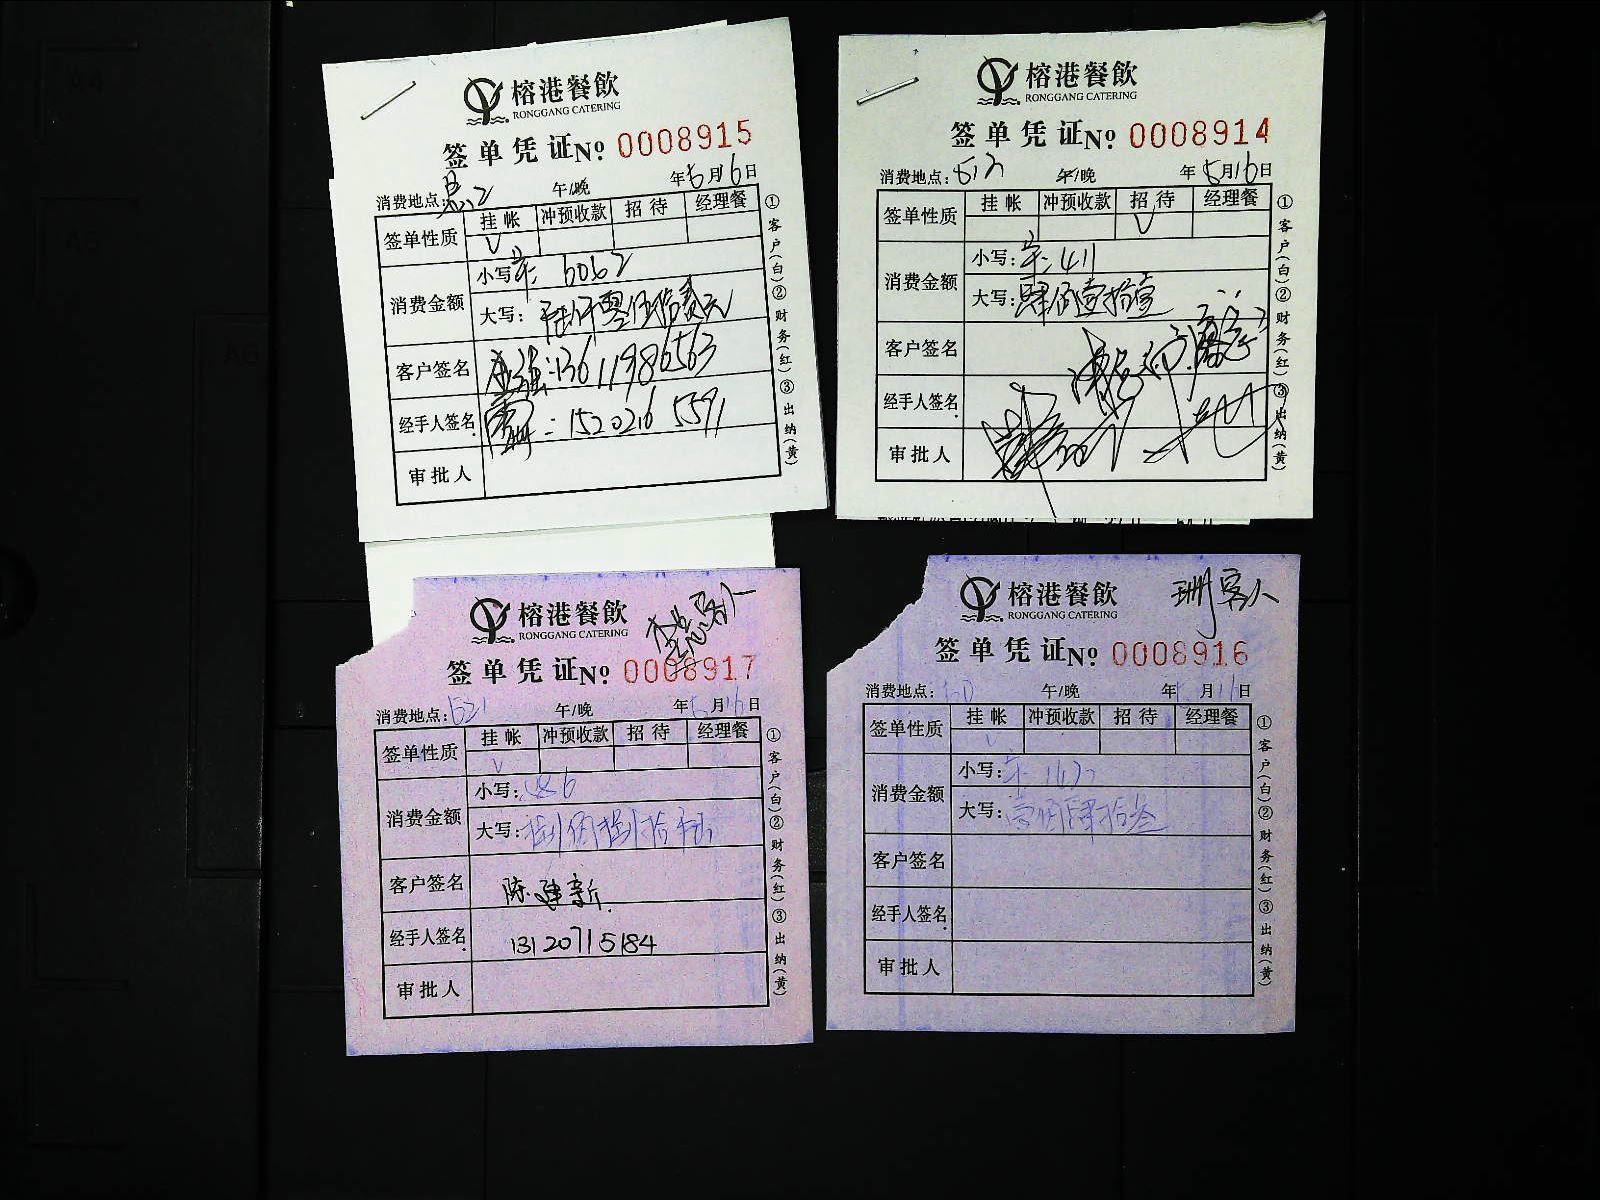 榕港餐飲
RONGGANG CATERING
签单凭证 No. 0008915
消费地点: 午/晚 年5月16日
签单性质 挂帐 冲预收款 招待 经理餐
V
消费金额 小写: 6062
大写: 陆仟零佰拾贰元
客户签名 13611986563
经手人签名 15202165591
审批人
①客户(白)②财务(红)③出纳(黄)
榕港餐飲
RONGGANG CATERING
签单凭证 No. 0008914
消费地点: 午/晚 年5月16日
签单性质 挂帐 冲预收款 招待 经理餐
V
消费金额 小写: 411
大写: 肆佰壹拾壹
客户签名
经手人签名
审批人
①客户(白)②财务(红)③出纳(黄)
榕港餐飲
RONGGANG CATERING
客人
签单凭证 No. 0008917
消费地点: 521 午/晚 年5月16日
签单性质 挂帐 冲预收款 招待 经理餐
V
消费金额 小写:
大写:
客户签名 陈建新
经手人签名 13120715184
审批人
①客户(白)②财务(红)③出纳(黄)
榕港餐飲
RONGGANG CATERING
客人
签单凭证 No. 0008916
消费地点: 午/晚 年 月16日
签单性质 挂帐 冲预收款 招待 经理餐
V
消费金额 小写:
大写: 壹佰肆拾叁
客户签名
经手人签名
审批人
①客户(白)②财务(红)③出纳(黄)